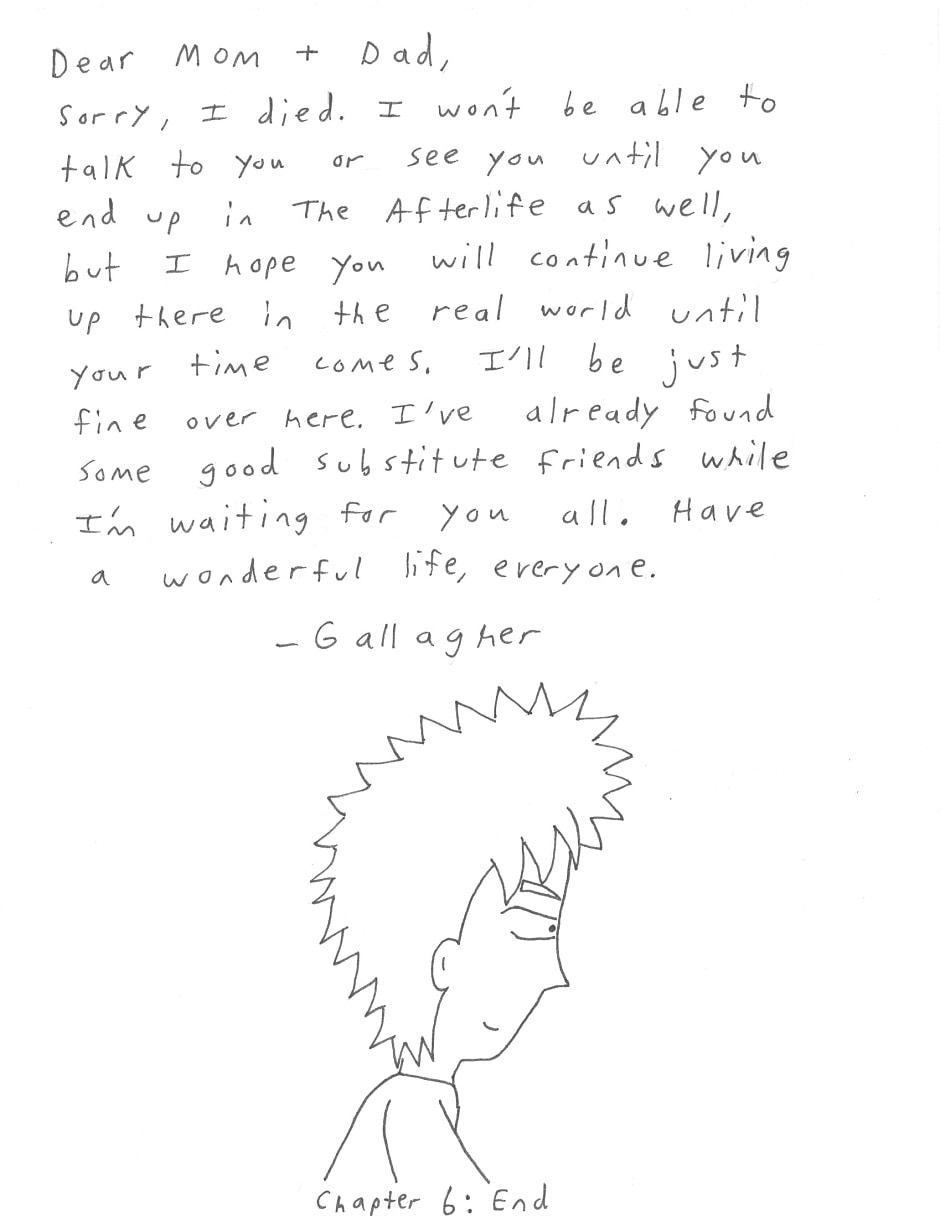 Dear Mom + Dad,
Sorry, I died. I won't be able to
talk to you or see you until you
end up in The Afterlife as well,
but I hope you will continue living
up there in the real world until
your time comes. I'll be just
fine over here. I've already found
some good substitute friends while
I'm waiting for you all. Have
a wonderful life, everyone.
– Gallagher
Chapter 6: End